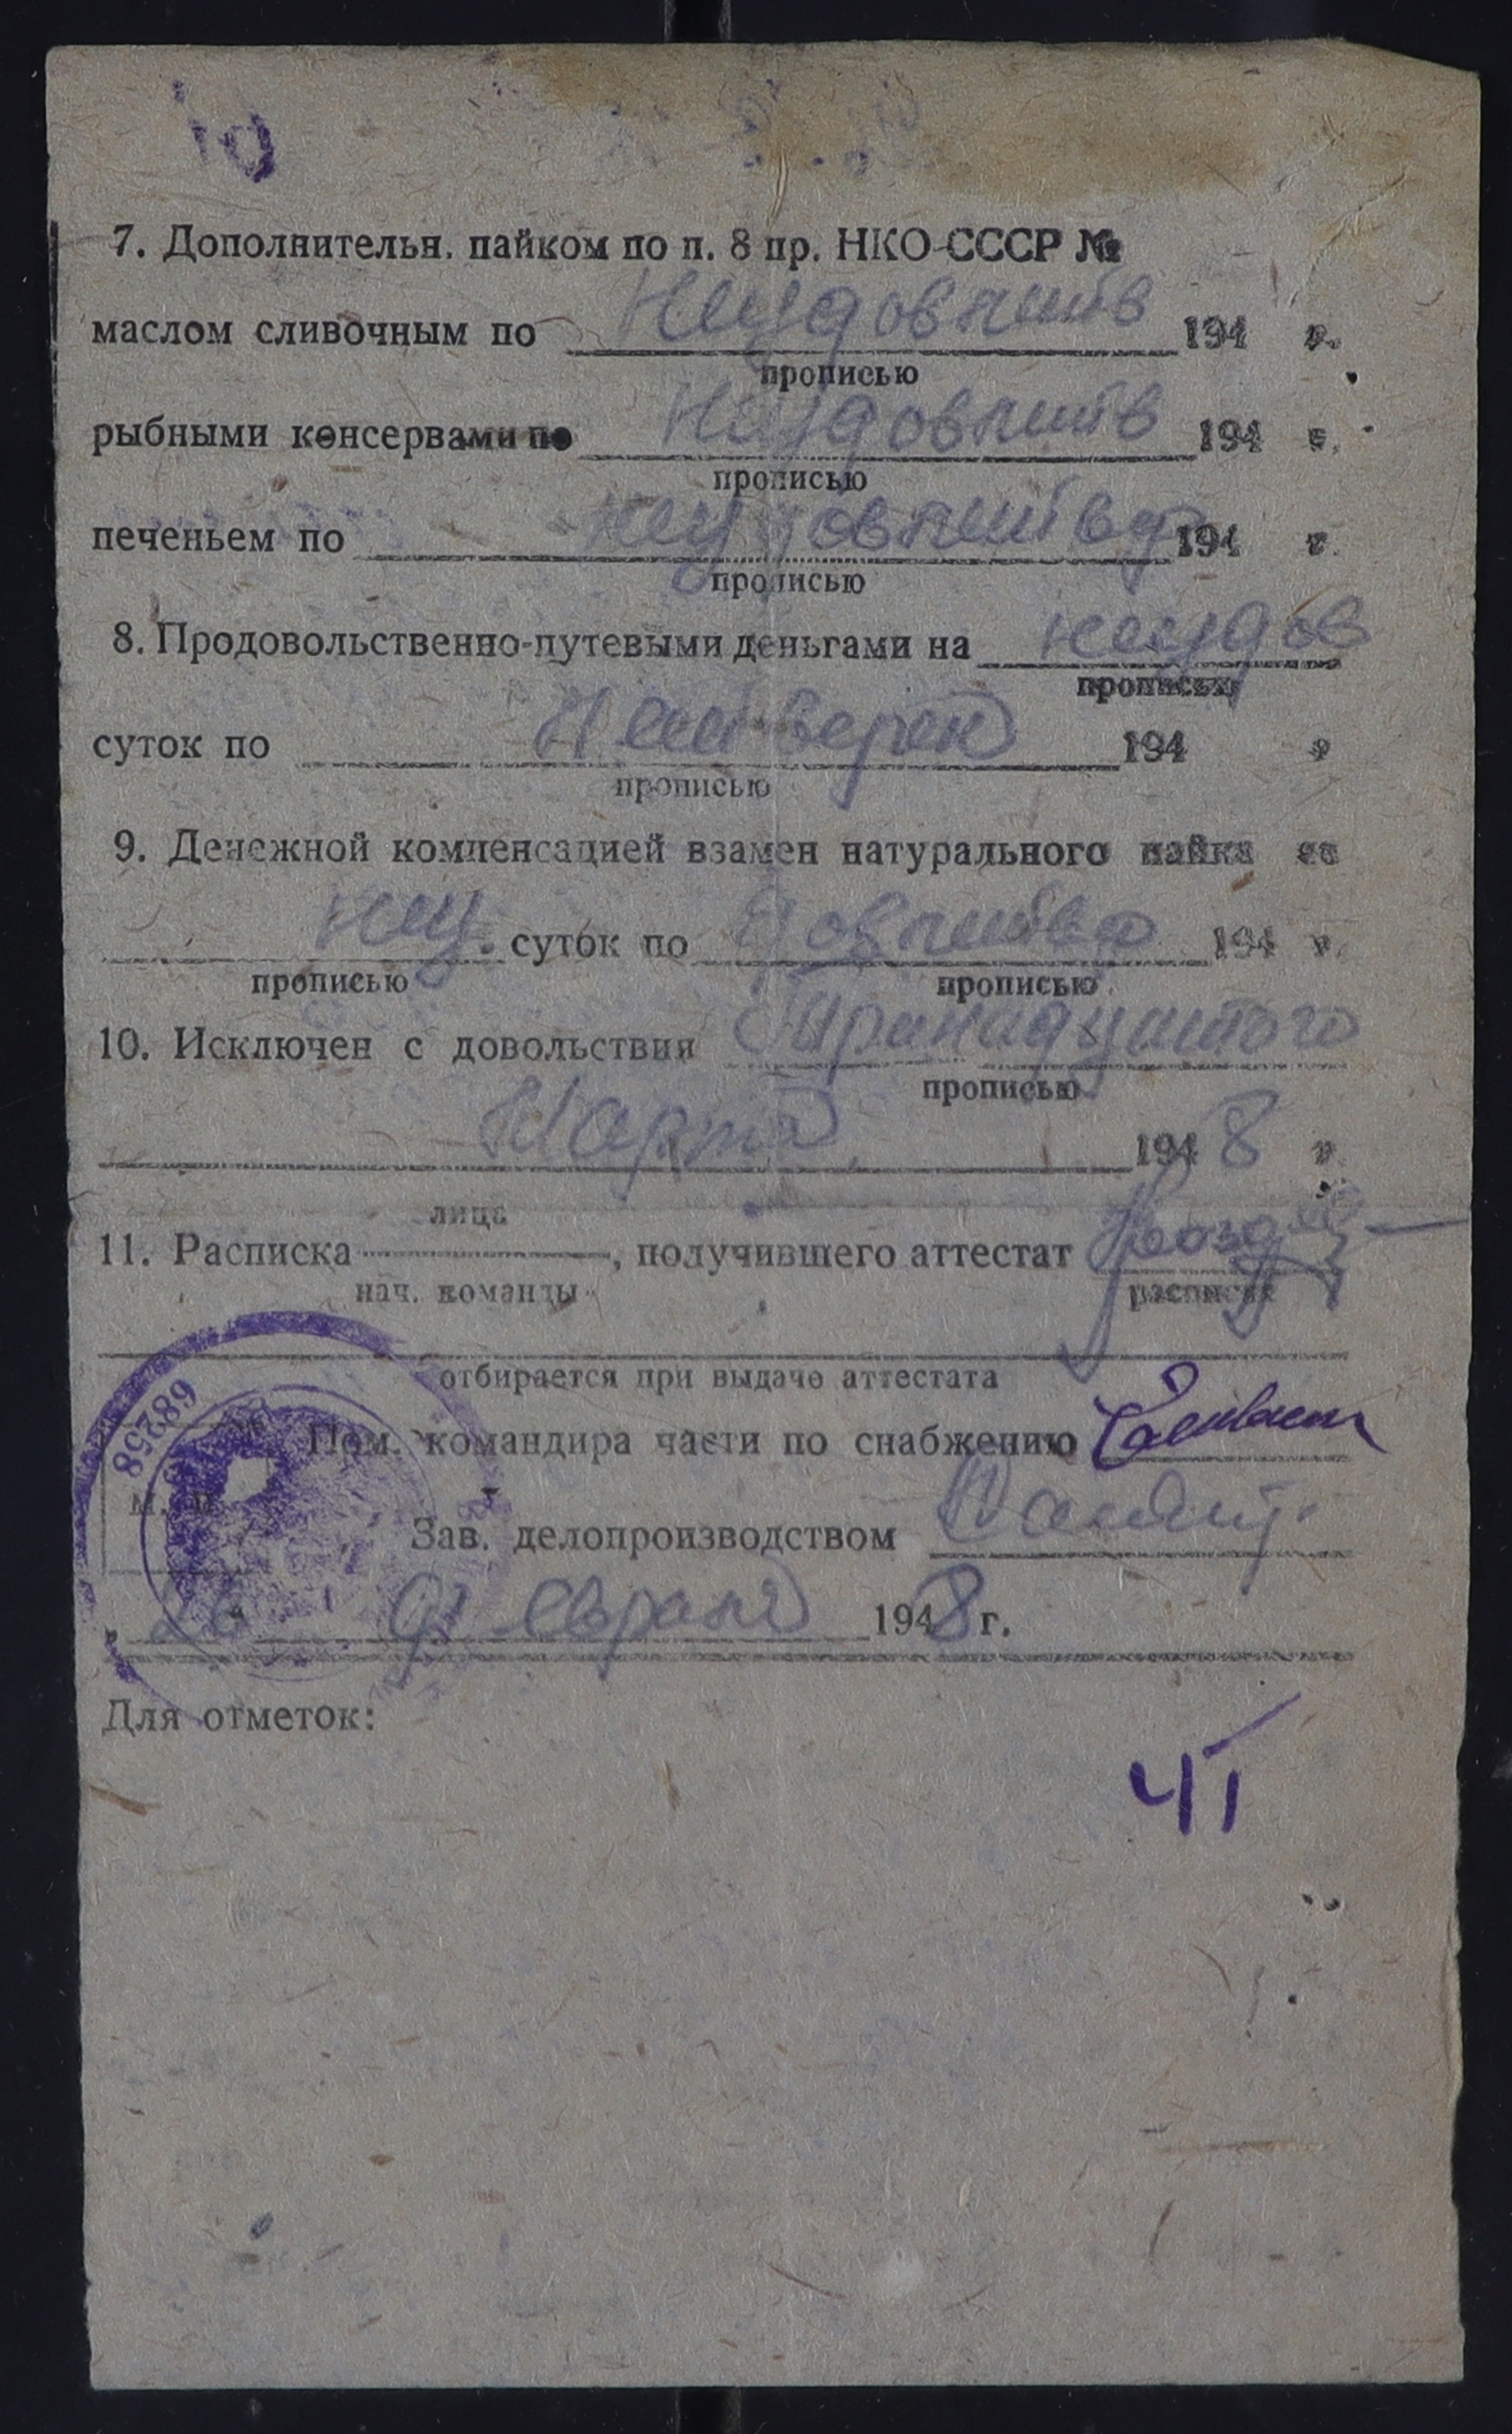 7. Дополнительн. пайком по п. 8 пр. НКО-СССР №
маслом сливочным по Неудовлитв 194 г.
прописью
рыбными консервами по Неудовлитв 194 г.
прописью
печеньем по неудовлитва 194 г.
прописью
8. Продовольственно-путевыми деньгами на неудов
прописью
суток по 194 г
прописью
9. Денежной компенсацией взамен натурального пайка
неу суток по довлитва 194 г.
прописью прописью
10. Исключен с довольствия Тринадцатого
прописью
Марта 1948 г
лица
11. Расписка , получившего аттестат
нач. команды расписка
отбирается при выдаче аттестата
68258
Пом. командира части по снабжению
м. п.
Зав. делопроизводством
26 Февраля 1948 г.
Для отметок: